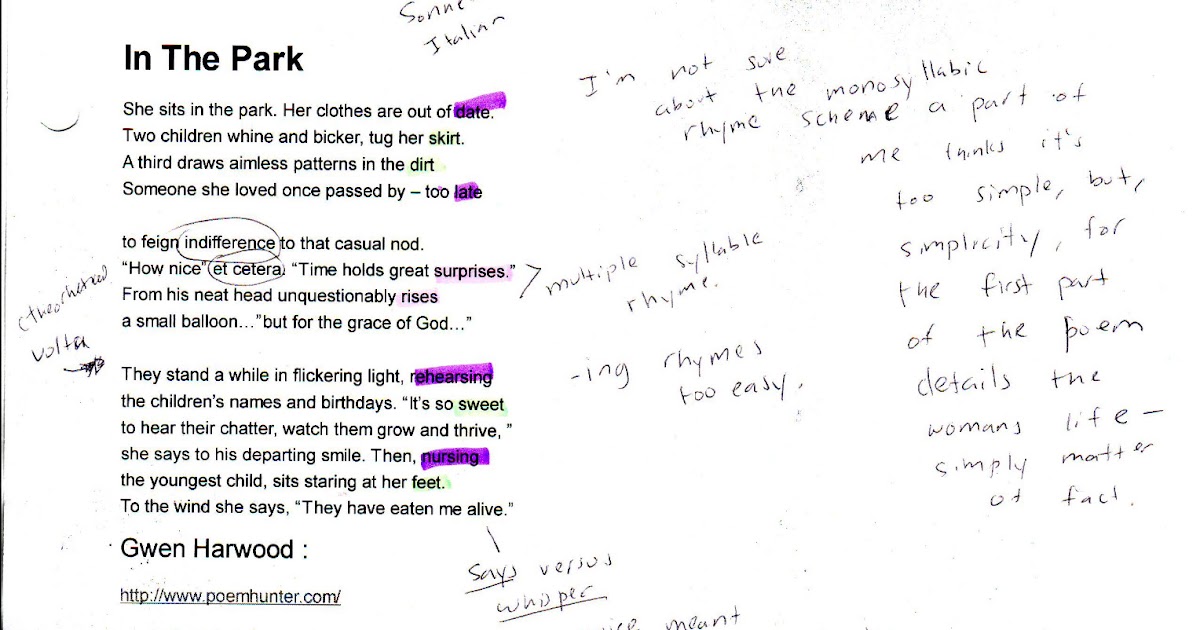 Italian
In The Park
She sits in the park. Her clothes are out of date.
Two children whine and bicker, tug her skirt.
A third draws aimless patterns in the dirt
Someone she loved once passed by – too late
to feign indifference to that casual nod.
“How nice” et cetera. “Time holds great surprises.”
From his neat head unquestionably rises
a small balloon…”but for the grace of God…”
They stand a while in flickering light, rehearsing
the children’s names and birthdays. “It’s so sweet
to hear their chatter, watch them grow and thrive, ”
she says to his departing smile. Then, nursing
the youngest child, sits staring at her feet.
To the wind she says, “They have eaten me alive.”
Gwen Harwood :
http://www.poemhunter.com/
volta
multiple syllable
rhyme.
-ing rhymes
too easy.
says versus
whisper
meant
I'm not sure
about the monosyllabic
rhyme scheme a part of
me thinks it's
too simple, but,
simplicity, for
the first part
of the poem
details the
womans life –
simply matter
of fact.